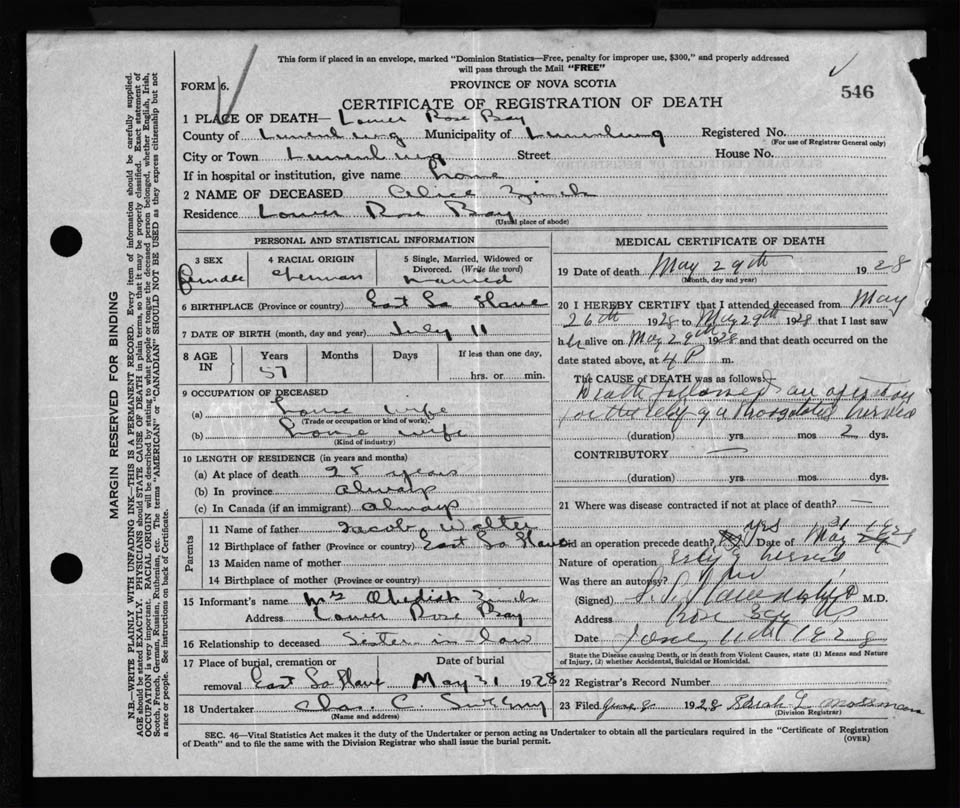 This form if placed in an envelope, marked "Dominion Statistics—Free, penalty for improper use, $300," and properly addressed
will pass through the Mail "FREE"
FORM 6.
PROVINCE OF NOVA SCOTIA
546
CERTIFICATE OF REGISTRATION OF DEATH
1 PLACE OF DEATH— Lower Rose Bay
County of Lunenburg Municipality of Lunenburg Registered No.
(For use of Registrar General only)
City or Town Lunenburg Street House No.
If in hospital or institution, give name home
2 NAME OF DECEASED Alice Zinck
Residence Lower Rose Bay
(Usual place of abode)
PERSONAL AND STATISTICAL INFORMATION
3 SEX 4 RACIAL ORIGIN 5 Single, Married, Widowed or
Divorced. (Write the word)
female German married
6 BIRTHPLACE (Province or country) East La Have
7 DATE OF BIRTH (month, day and year) July 11
8 AGE IN Years Months Days If less than one day,
57 hrs. or min.
9 OCCUPATION OF DECEASED
(a) house wife
(Trade or occupation or kind of work)
(b) house wife
(Kind of industry)
10 LENGTH OF RESIDENCE (in years and months)
(a) At place of death 28 years
(b) In province always
(c) In Canada (if an immigrant) always
Parents
11 Name of father Jacob Walter
12 Birthplace of father (Province or country) East La Have
13 Maiden name of mother
14 Birthplace of mother (Province or country)
15 Informant's name Mrs Obediah Zinck
Address Lower Rose Bay
16 Relationship to deceased Sister in law
17 Place of burial, cremation or Date of burial
removal East La Have May 31 1928
18 Undertaker Chas. C. Sweeny
(Name and address)
MEDICAL CERTIFICATE OF DEATH
19 Date of death May 29th 1928
(Month, day and year)
20 I HEREBY CERTIFY that I attended deceased from May
26th 1928 to May 29th 1928 that I last saw
her alive on May 29th 1928 and that death occurred on the
date stated above, at 4 P m.
The CAUSE of DEATH was as follows:
Death followed an operation
for the relief of a strangulated hernia
(duration) yrs mos 2 dys.
CONTRIBUTORY —
(duration) yrs. mos. dys.
21 Where was disease contracted if not at place of death?
Did an operation precede death? yes Date of May
Nature of operation hernia
Was there an autopsy? No
(Signed) M.D.
Address Rose Bay NS
Date June 11th 1928
State the Disease causing Death, or in death from Violent Causes, state (1) Means and Nature
of Injury, (2) whether Accidental, Suicidal or Homicidal.
22 Registrar's Record Number
23 Filed June 1928 Sarah L Mossman
(Division Registrar)
SEC. 46—Vital Statistics Act makes it the duty of the Undertaker or person acting as Undertaker to obtain all the particulars required in the "Certificate of Registration
of Death" and to file the same with the Division Registrar who shall issue the burial permit.
(OVER)
MARGIN RESERVED FOR BINDING
N.B.—WRITE PLAINLY WITH UNFADING INK—THIS IS A PERMANENT RECORD. Every item of information should be carefully supplied.
AGE should be stated EXACTLY. PHYSICIANS should STATE CAUSE OF DEATH in plain terms, so that it may be properly classified. Exact statement of
OCCUPATION is very important. RACIAL ORIGIN will be described by stating to what people or tongue the deceased person belonged, whether English, Irish,
Scotch, French, German, Russian, Ruthenian, etc. The terms "AMERICAN" or "CANADIAN" SHOULD NOT BE USED as they express citizenship but not
a race or people. See instructions on back of Certificate.